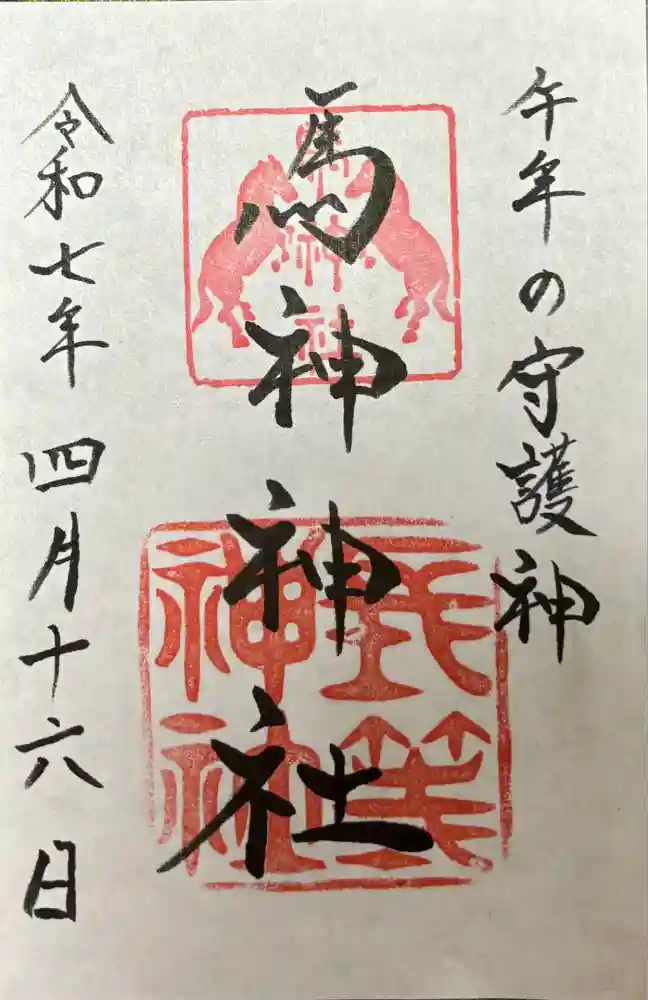 午年の守護神
馬神神社
長等
神社
令和七年四月十六日